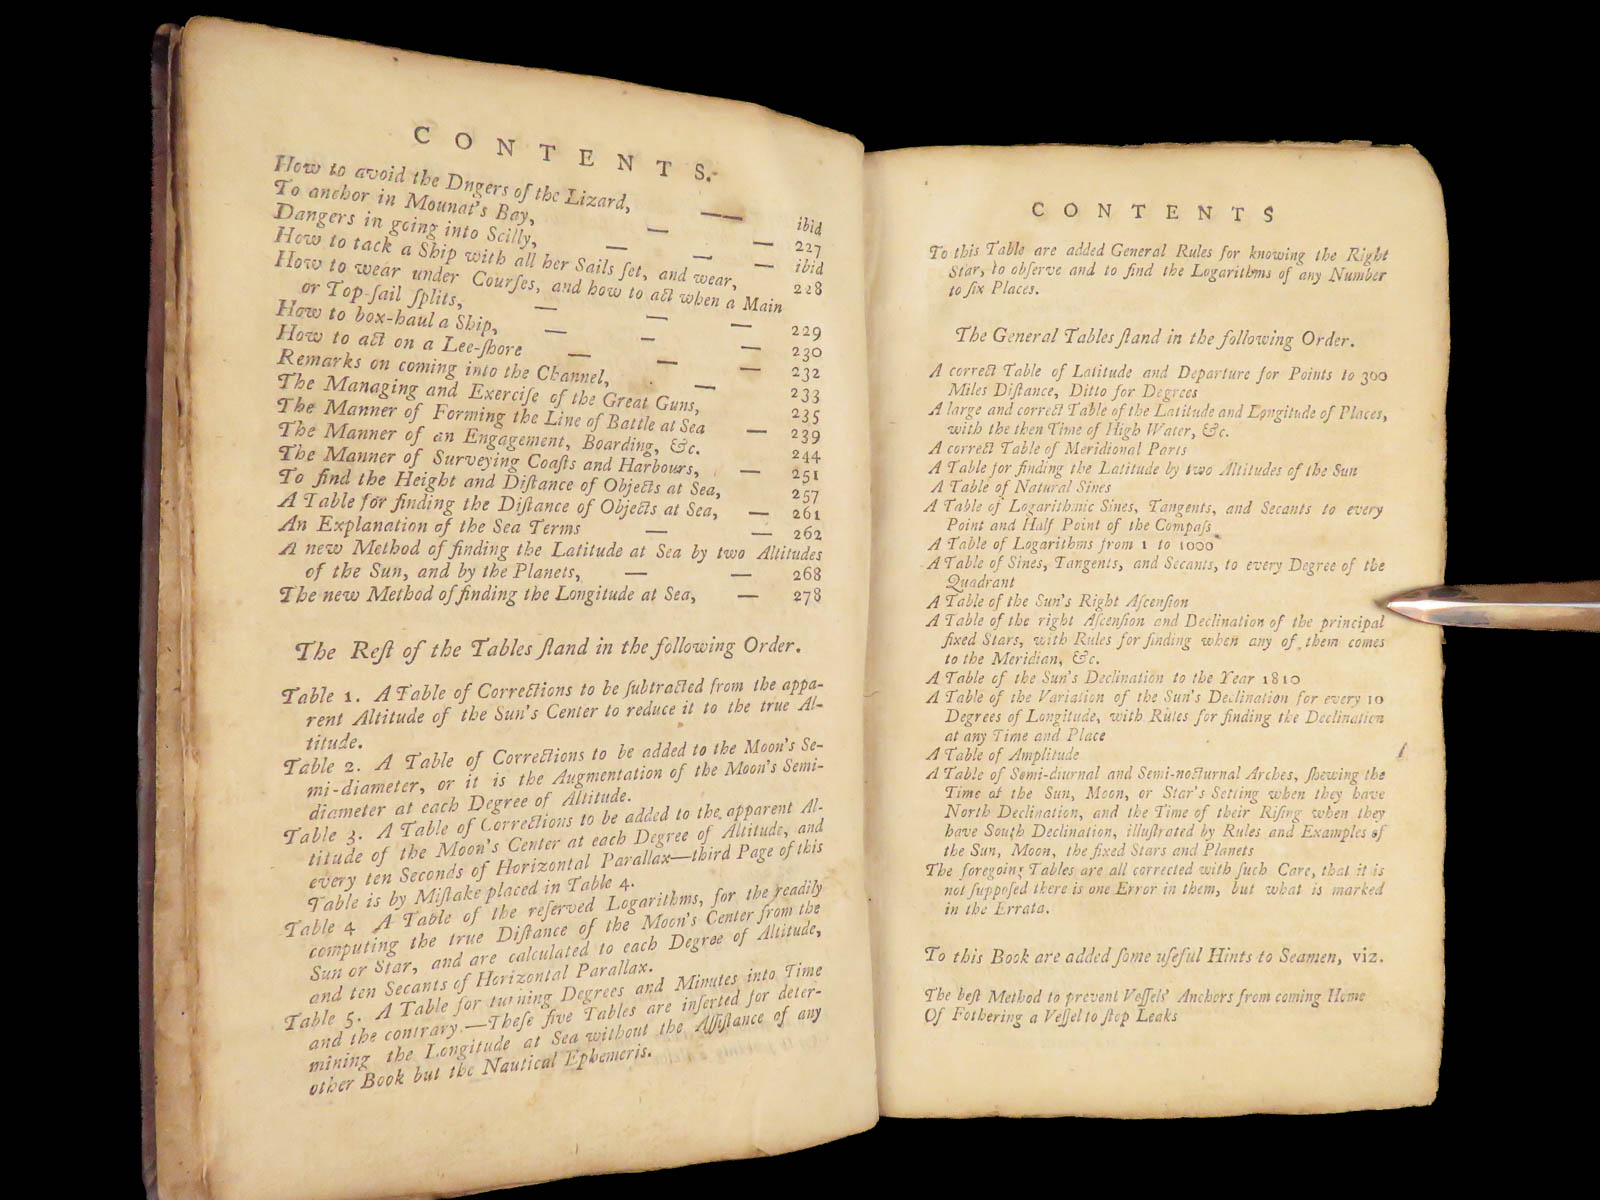 CONTENTS.
How to avoid the Dngers of the Lizard, —— ibid
To anchor in Mounat's Bay, — — 227
Dangers in going into Scilly, — — ibid
How to tack a Ship with all her Sails ſet, and wear, 228
How to wear under Courſes, and how to act when a Main
or Top-ſail ſplits, — — — 229
How to box-haul a Ship, — — — 230
How to act on a Lee-ſhore — — — 232
Remarks on coming into the Channel, — 233
The Managing and Exerciſe of the Great Guns, 235
The Manner of Forming the Line of Battle at Sea — 239
The Manner of an Engagement, Boarding, &c. 244
The Manner of Surveying Coaſts and Harbours, — 251
To find the Height and Diſtance of Objects at Sea, 257
A Table for finding the Diſtance of Objects at Sea, — 261
An Explanation of the Sea Terms — — 262
A new Method of finding the Latitude at Sea by two Altitudes
of the Sun, and by the Planets, — — 268
The new Method of finding the Longitude at Sea, — 278
The Reſt of the Tables ſtand in the following Order.
Table 1. A Table of Corrections to be ſubtracted from the appa-
rent Altitude of the Sun's Center to reduce it to the true Al-
titude.
Table 2. A Table of Corrections to be added to the Moon's Se-
mi-diameter, or it is the Augmentation of the Moon's Semi-
diameter at each Degree of Altitude.
Table 3. A Table of Corrections to be added to the apparent Al-
titude of the Moon's Center at each Degree of Altitude, and
every ten Seconds of Horizontal Parallax—third Page of this
Table is by Miſtake placed in Table 4.
Table 4 A Table of the reſerved Logarithms, for the readily
computing the true Diſtance of the Moon's Center from the
Sun or Star, and are calculated to each Degree of Altitude,
and ten Secants of Horizontal Parallax.
Table 5. A Table for turning Degrees and Minutes into Time
and the contrary.—Theſe five Tables are inſerted for deter-
mining the Longitude at Sea without the Aſſiſtance of any
other Book but the Nautical Ephemeris.
CONTENTS
To this Table are added General Rules for knowing the Right
Star, to obſerve and to find the Logarithms of any Number
to ſix Places.
The General Tables ſtand in the following Order.
A correct Table of Latitude and Departure for Points to 300
Miles Diſtance, Ditto for Degrees
A large and correct Table of the Latitude and Longitude of Places,
with the then Time of High Water, &c.
A correct Table of Meridional Parts
A Table for finding the Latitude by two Altitudes of the Sun
A Table of Natural Sines
A Table of Logarithmic Sines, Tangents, and Secants to every
Point and Half Point of the Compaſs
A Table of Logarithms from 1 to 1000
A Table of Sines, Tangents, and Secants, to every Degree of the
Quadrant
A Table of the Sun's Right Aſcenſion
A Table of the right Aſcenſion and Declination of the principal
fixed Stars, with Rules for finding when any of them comes
to the Meridian, &c.
A Table of the Sun's Declination to the Year 1810
A Table of the Variation of the Sun's Declination for every 10
Degrees of Longitude, with Rules for finding the Declination
at any Time and Place
A Table of Amplitude
A Table of Semi-diurnal and Semi-nocturnal Arches, ſhewing the
Time of the Sun, Moon, or Star's Setting when they have
North Declination, and the Time of their Riſing when they
have South Declination, illuſtrated by Rules and Examples of
the Sun, Moon, the fixed Stars and Planets
The foregoing Tables are all corrected with ſuch Care, that it is
not ſuppoſed there is one Error in them, but what is marked
in the Errata.
To this Book are added ſome uſeful Hints to Seamen, viz.
The beſt Method to prevent Veſſels' Anchors from coming Home
Of Fothering a Veſſel to ſtop Leaks